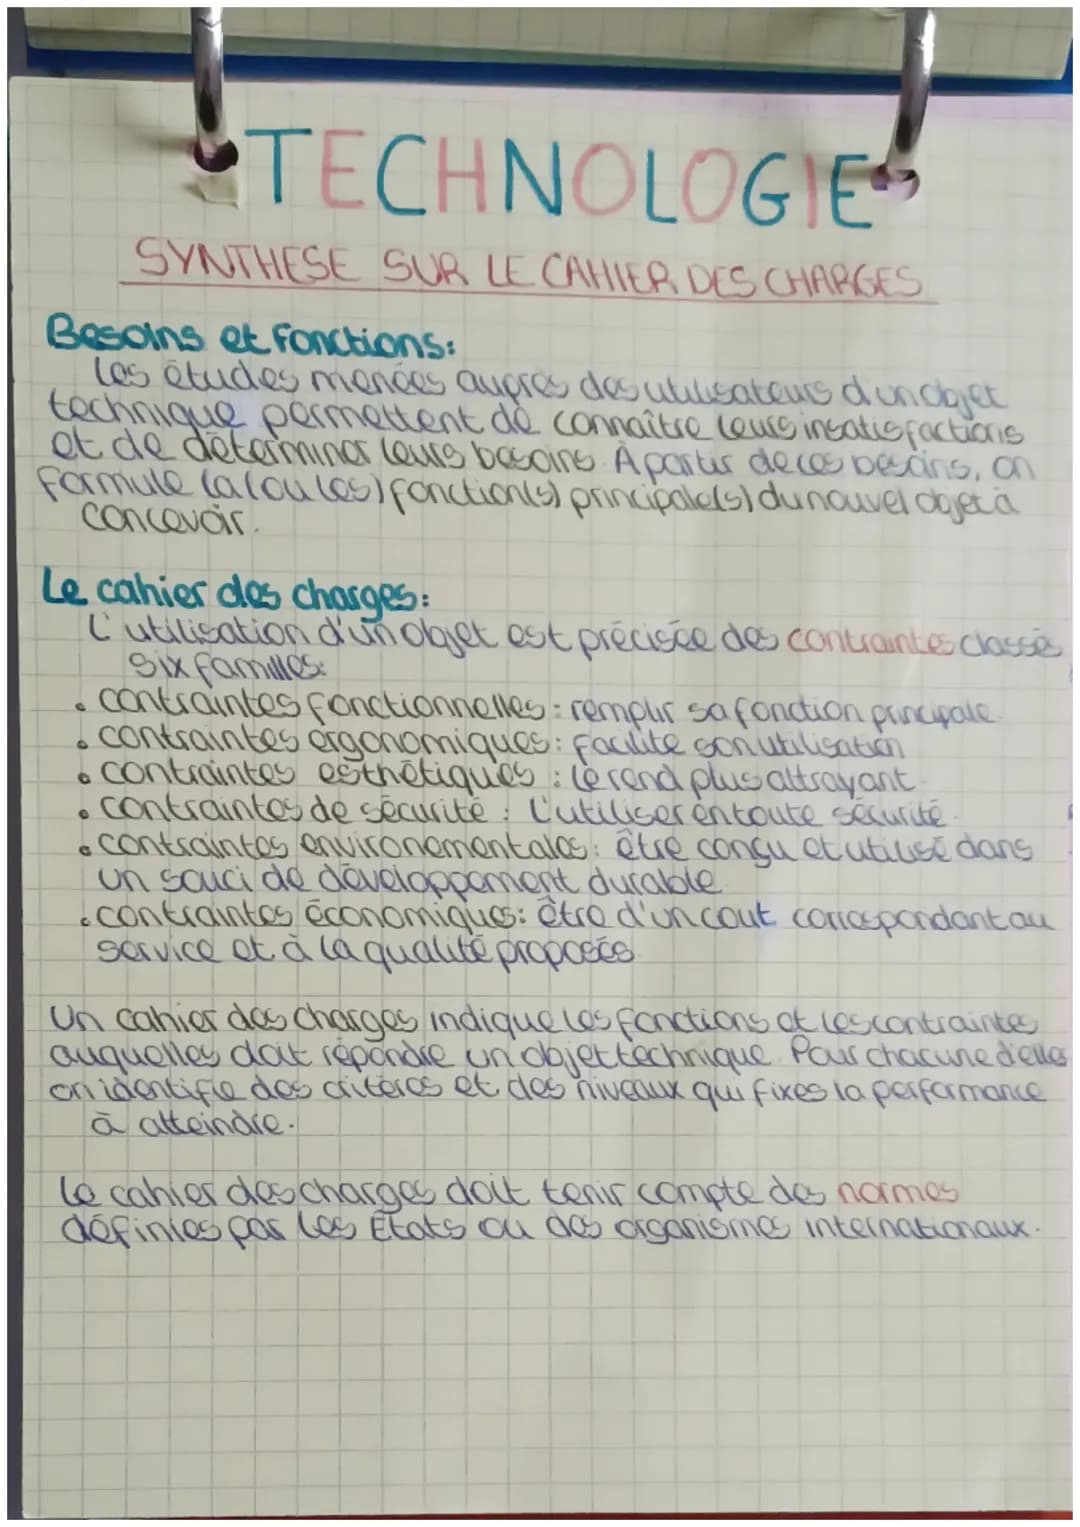 TECHNOLOGIE
SYNTHESE SUR LE CAHIER DES CHARGES
Besoins et fonctions:
Les études menées auprès des utilisateurs d'un objet
technique permettent de connaître leurs insatisfactions
et de déterminer leurs besoins. À partir de ces besoins, on
formule la (ou les) fonction(s) principale(s) du nouvel objet à
concevoir.
Le cahier des charges:
L'utilisation d'un objet est précisée des contraintes classés
six familles:
• contraintes fonctionnelles : remplir sa fonction principale.
• contraintes ergonomiques: facilite son utilisation
• contraintes esthétiques : le rend plus attrayant.
• contraintes de sécurité : L'utiliser en toute sécurité.
• contraintes environementales: être conçu et utilisé dans
un souci de développement durable.
• contraintes économiques: être d'un cout correspondant au
service et à la qualité proposés.
Un cahier des charges indique les fonctions et les contraintes
auquelles doit répondre un objet technique. Pour chacune d'elles
on identifie des critères et des niveaux qui fixes la performance
à atteindre.
Le cahier des charges doit tenir compte des normes
définies par les États ou des organismes internationaux.